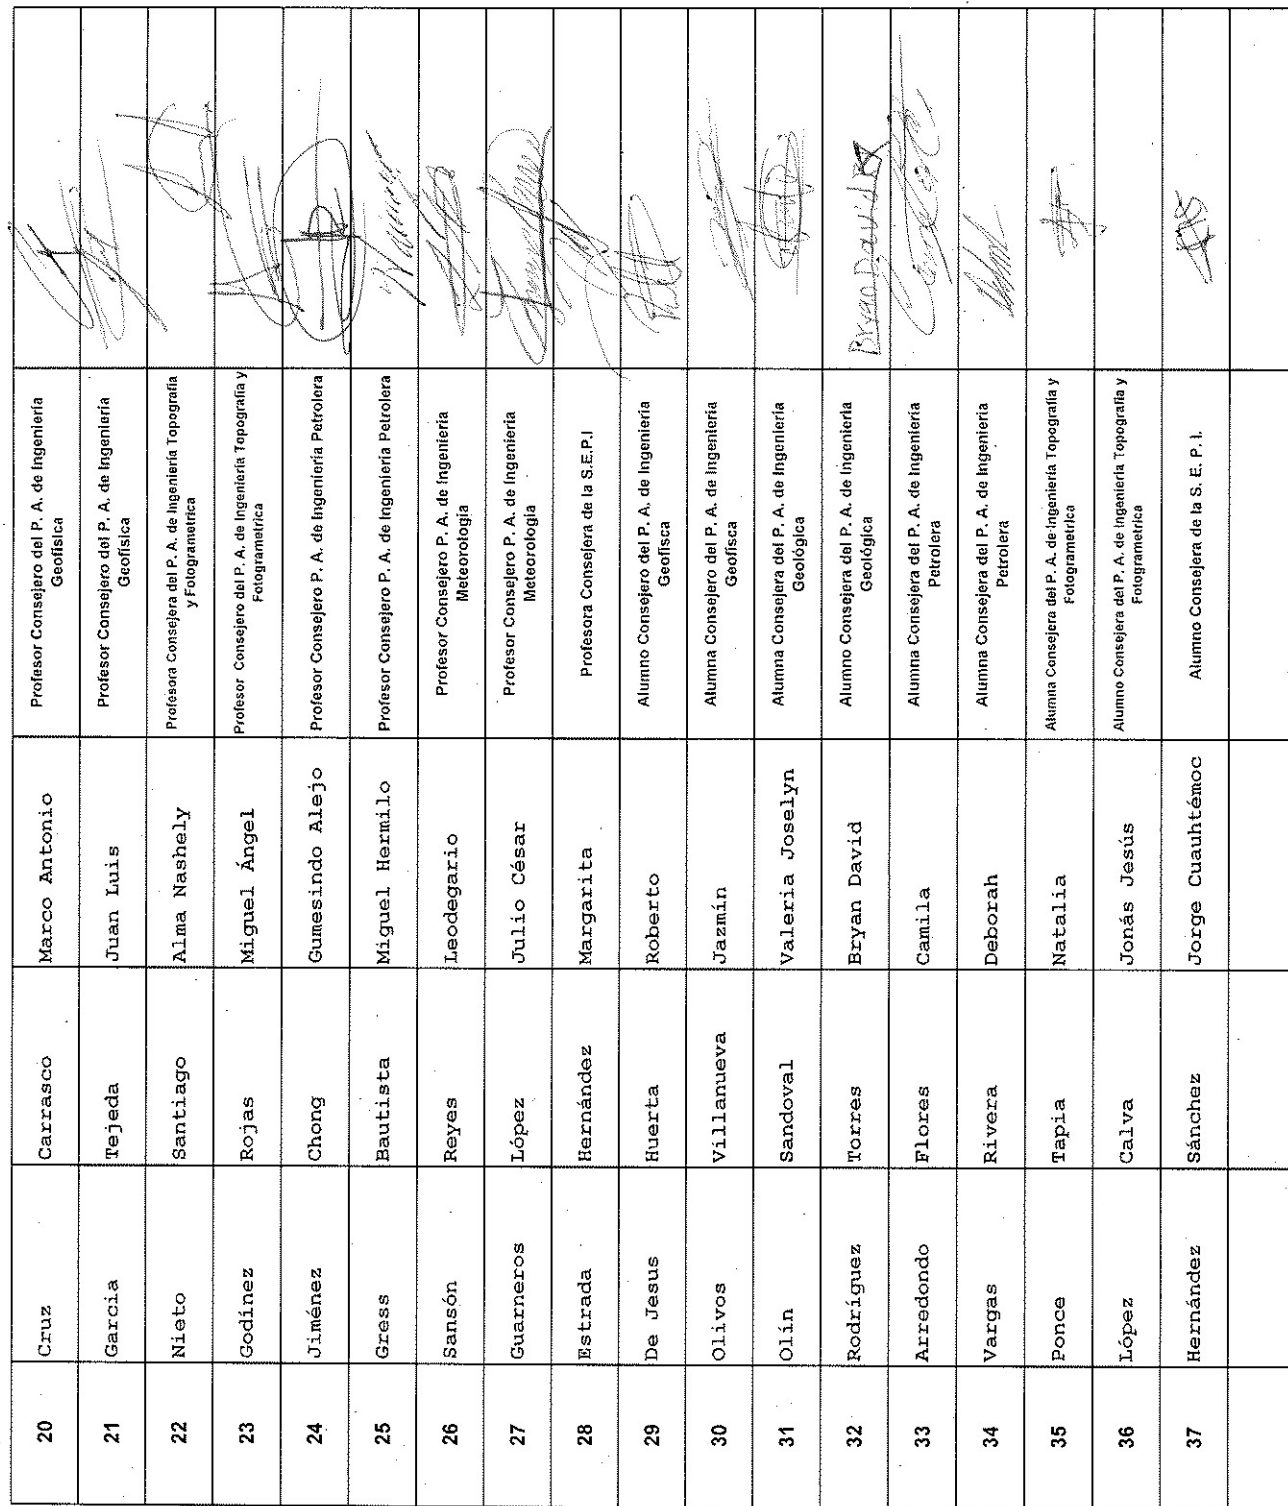 20 Cruz Carrasco Marco Antonio Profesor Consejero del P. A. de Ingeniería
Geofísica
21 Garcia Tejeda Juan Luis Profesor Consejero del P. A. de Ingeniería
Geofísica
22 Nieto Santiago Alma Nashely Profesora Consejera del P. A. de Ingeniería Topografía
y Fotogrametrica
23 Godínez Rojas Miguel Ángel Profesor Consejero del P. A. de Ingeniería Topografía y
Fotogrametrica
24 Jiménez Chong Gumesindo Alejo Profesor Consejero P. A. de Ingeniería Petrolera
25 Gress Bautista Miguel Hermilo Profesor Consejero P. A. de Ingeniería Petrolera
26 Sansón Reyes Leodegario Profesor Consejero P. A. de Ingeniería
Meteorología
27 Guarneros López Julio César Profesor Consejero P. A. de Ingeniería
Meteorología
28 Estrada Hernández Margarita Profesora Consejera de la S.E.P.I
29 De Jesus Huerta Roberto Alumno Consejero del P. A. de Ingeniería
Geofísca
30 Olivos Villanueva Jazmín Alumna Consejera del P. A. de Ingeniería
Geofísca
31 Olín Sandoval Valeria Joselyn Alumna Consejera del P. A. de Ingeniería
Geológica
32 Rodríguez Torres Bryan David Alumno Consejera del P. A. de Ingeniería
Geológica Bryan David
33 Arredondo Flores Camila Alumna Consejera del P. A. de Ingeniería
Petrolera
34 Vargas Rivera Deborah Alumna Consejera del P. A. de Ingeniería
Petrolera
35 Ponce Tapia Natalia Alumna Consejera del P. A. de Ingeniería Topografía y
Fotogrametrica
36 López Calva Jonás Jesús Alumno Consejera del P. A. de Ingeniería Topografía y
Fotogrametrica
37 Hernández Sánchez Jorge Cuauhtémoc Alumno Consejera de la S. E. P. I.